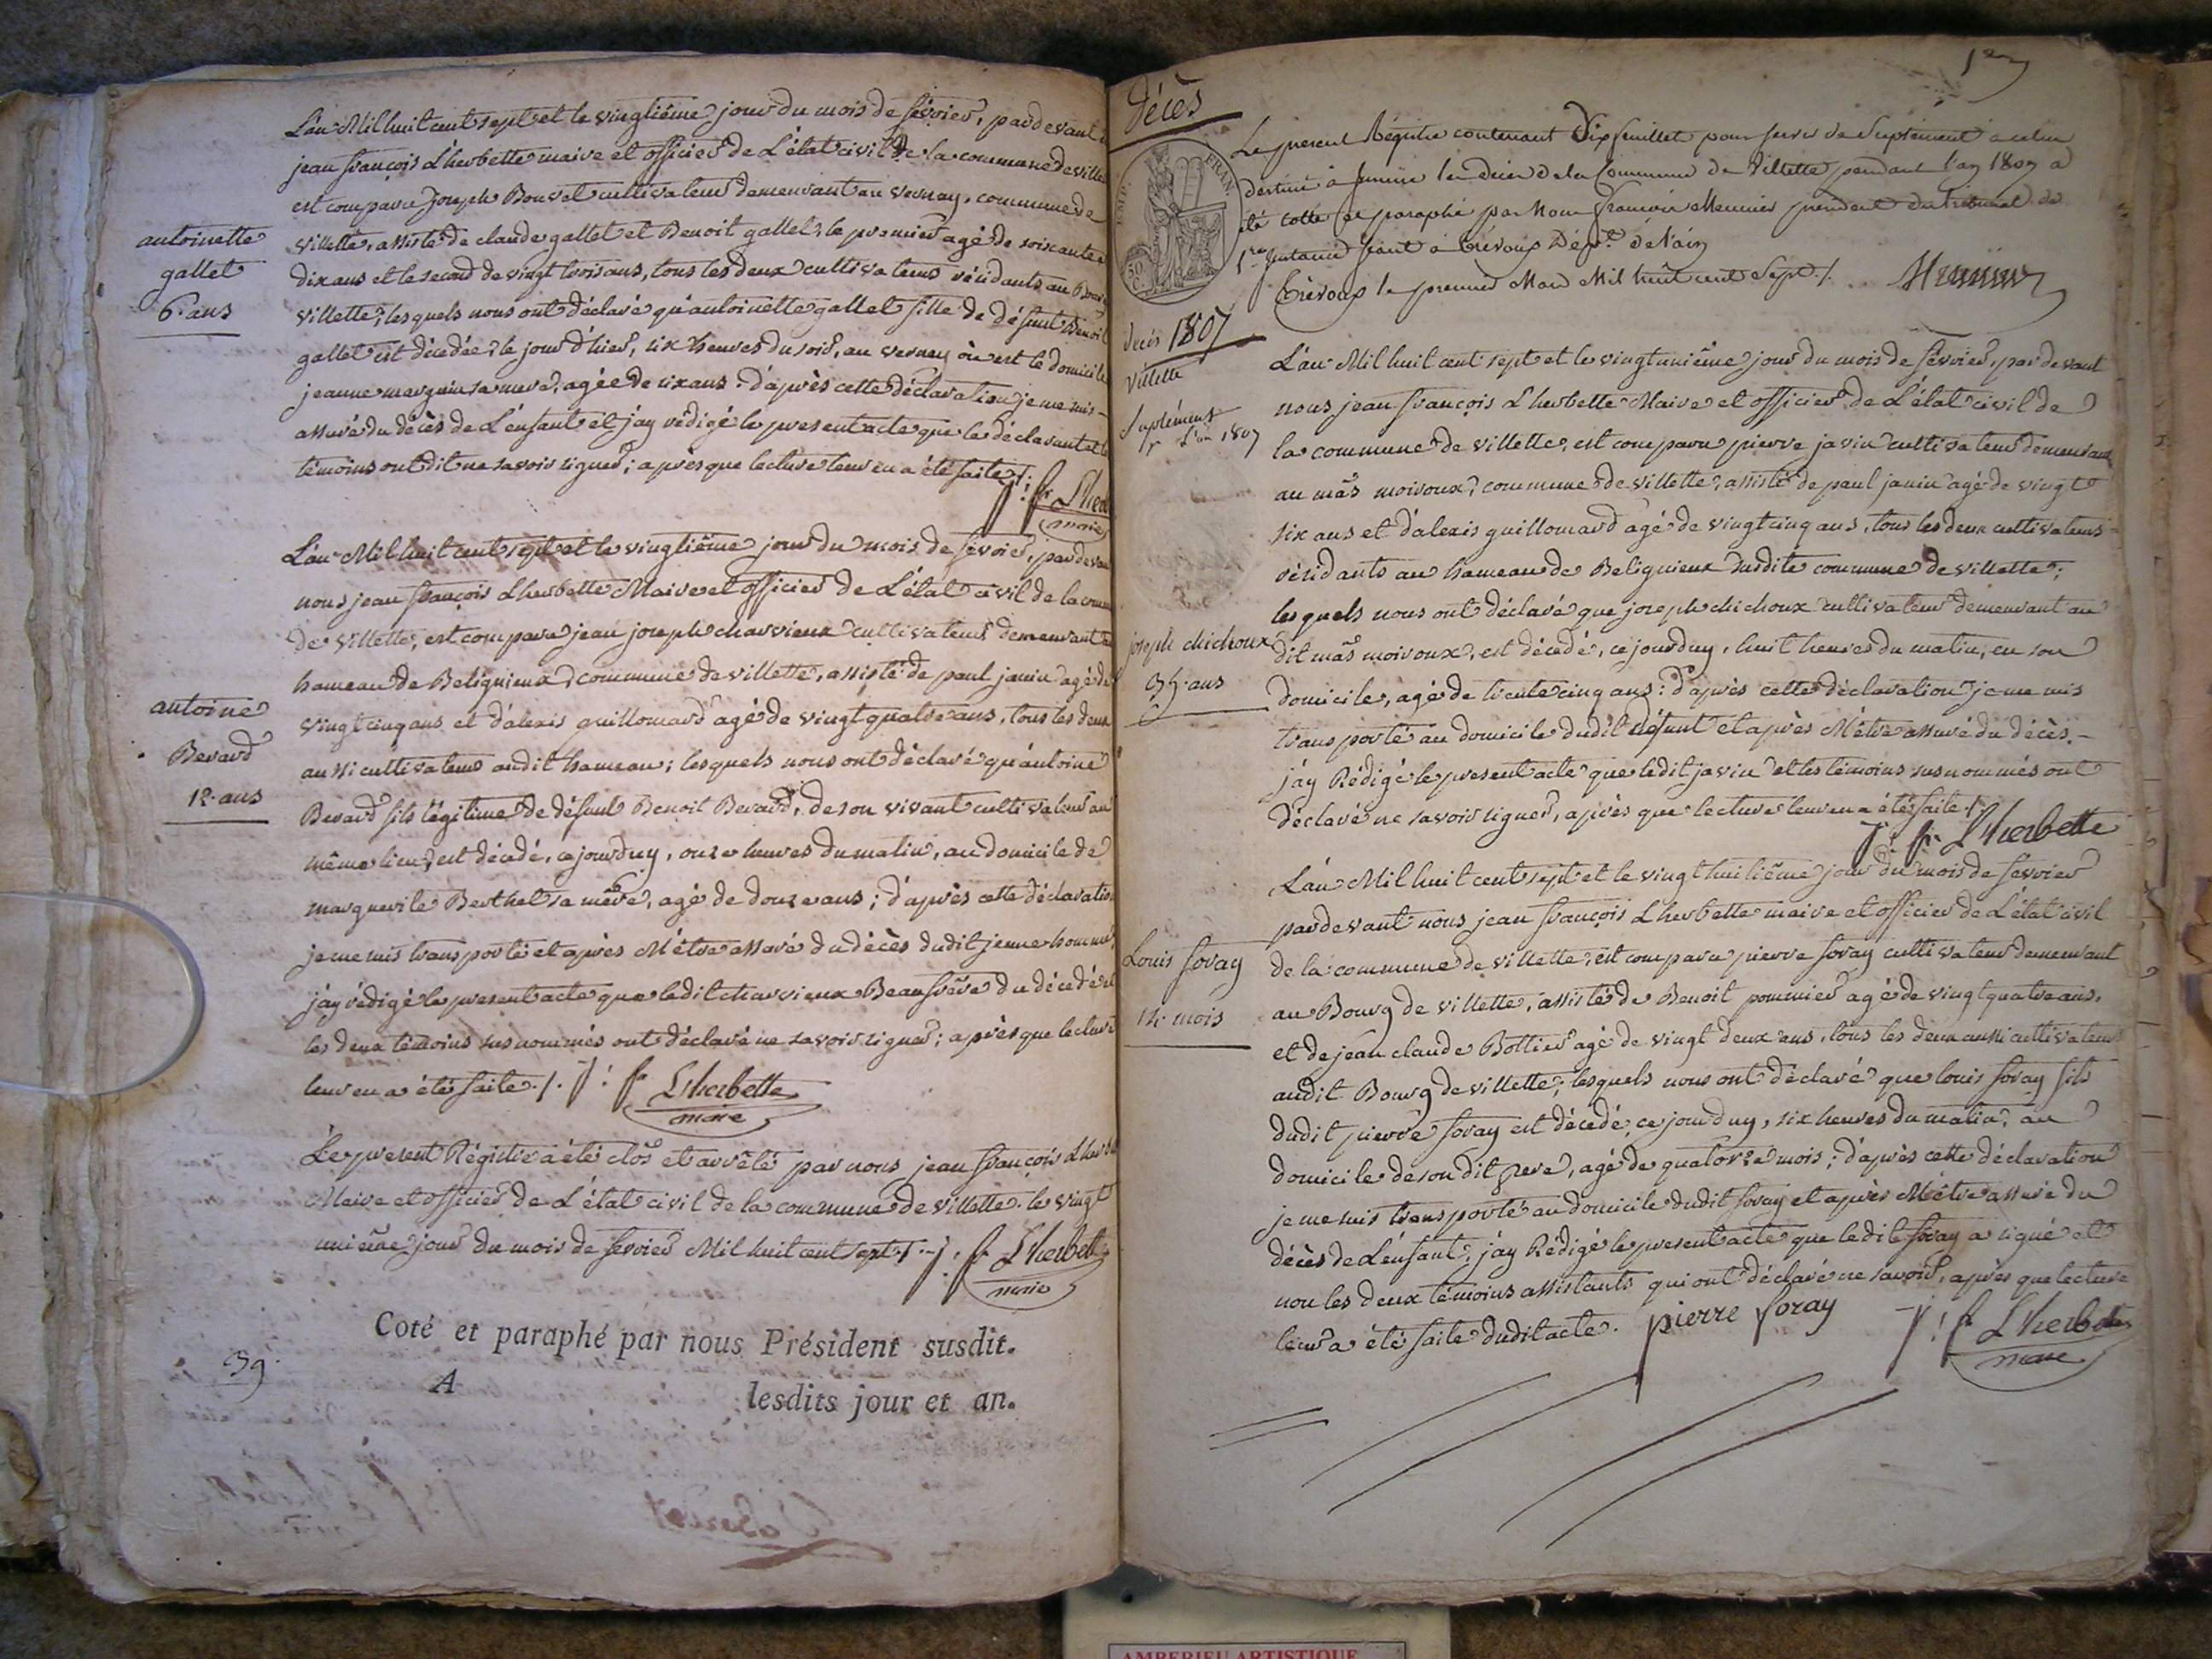 L'an Mil huit cent sept et le vingtième jour du mois de fevrier, pardevant
jean françois Lherbette maire et officier de L'état civil de la commune de ville
est comparu Joseph Bouvet cultivateur demeurant au vernay, commune de
villette, assisté de claude gallet et Benoit gallet, le premier agé de soixante
dix ans et le second de vingt trois ans, tous les deux cultivateurs résidants au
villette, lesquels nous ont déclaré qu'antoinette gallet fille de défunt Benoit
gallet est décédée, le jour d'hier, six heures du soir, au vernay où est le domicile
jeanne marguin sa mere, agée de six ans. d'après cette déclaration je me suis
assuré du décès de L'enfant et j'ay rédigé le present acte que le déclarant et
témoins ont dit ne savoir signer; après que lecture leur en a été faite./.
j: f Lher
maire
antoinette
gallet
6. ans
L'an Mil huit cent sept et le vingtième jour du mois de fevrier, pardevan
nous jean françois Lherbette Maire et officier de L'état civil de la comm
de villette, est comparu jean joseph charvieux cultivateur demeurant
hameau de Beligneux, commune de villette, assisté de paul janin agé de
vingt cinq ans et d'alexis guillomard agé de vingt quatre ans, tous les deux
aussi cultivateurs audit hameau; lesquels nous ont déclaré qu'antoine
Berard fils légitime de défunt Benoit Berard, de son vivant cultivateur au
même lieu, est décédé, ce jourduy, onze heures du matin, au domicile de
marguerite Berthet sa mère, agé de douze ans; d'après cette déclaration
je me suis transporté et après M'être assuré du décès dudit jeune homme,
j'ay rédigé le present acte que ledit charvieux Beaufrère du décédé et
les deux témoins susnommés ont déclaré ne savoir signer; après que lecture
leur en a été faite./. j: f Lherbette
maire
antoine
Berard
12. ans
Le present Régistre a été clos et arrêté par nous jean françois Lherb
Maire et officier de L'état civil de la commune de villette. le vingt
unième jour du mois de fevrier Mil huit cent sept./. j: f Lherbette
maire
Coté et paraphé par nous Président susdit.
A
lesdits jour et an.
39.
1er
Décès
Le present Régistre contenant Dix feuillet pour servir de Suplément à celui
destiné à inscrire les Décès de la Commune de Villette pendant l'an 1807 a
été cotté et paraphé par Nous françois Meunier président du tribunal de
1ere instance séant à Trévoux Dépt. de l'ain
Trévoux le premier Mars Mil huit cent Sept./. Meunier
FRAN.
décès 1807
Villette
Suplément
pr L'an 1807
L'an Mil huit cent sept et le vingtunième jour du mois de fevrier, pardevant
nous jean françois Lherbette Maire et officier de L'état civil de
la commune de villette, est comparu pierre javin cultivateur demeurant
au mâs moiroux, commune de villette, assisté de paul janin agé de vingt
six ans et d'alexis guillomard agé de vingt cinq ans, tous les deux cultivateurs
résidants au hameau de Beligneux susdite commune de villette;
lesquels nous ont déclaré que joseph chichoux cultivateur demeurant au
dit mâs moiroux, est décédé, ce jourduy, huit heures du matin, en son
domicile, agé de trente cinq ans: d'après cette déclaration je me suis
transporté au domicile dudit défunt et après M'être assuré du décès
j'ay Rédigé le present acte que ledit javin et les témoins susnommés ont
déclaré ne savoir signer, après que lecture leur en a été faite./.
j: f Lherbette
joseph chichoux
35. ans
L'an Mil huit cent sept et le vingt huitième jour du mois de fevrier
pardevant nous jean françois Lherbette maire et officier de L'état civil
de la commune de villette, est comparu pierre foray cultivateur demeurant
au Bourg de villette, assisté de Benoit pommier agé de vingt quatre ans,
et de jean claude Bottier agé de vingt deux ans, tous les deux aussi cultivateurs
audit Bourg de villette; lesquels nous ont déclaré que louis foray fils
dudit pierre foray est décédé, ce jourduy, six heures du matin, au
domicile de son dit pere, agé de quatorze mois; d'après cette déclaration
je me suis transporté au domicile dudit foray et après M'être assuré du
décès de L'enfant, j'ay Rédigé le present acte que ledit foray a signé et
non les deux témoins assistants qui ont déclaré ne savoir, après que lecture
leur a été faite dudit acte. pierre foray j: f Lherbette
maire
Louis foray
14. mois
AMBERIEU ARTISTIQUE